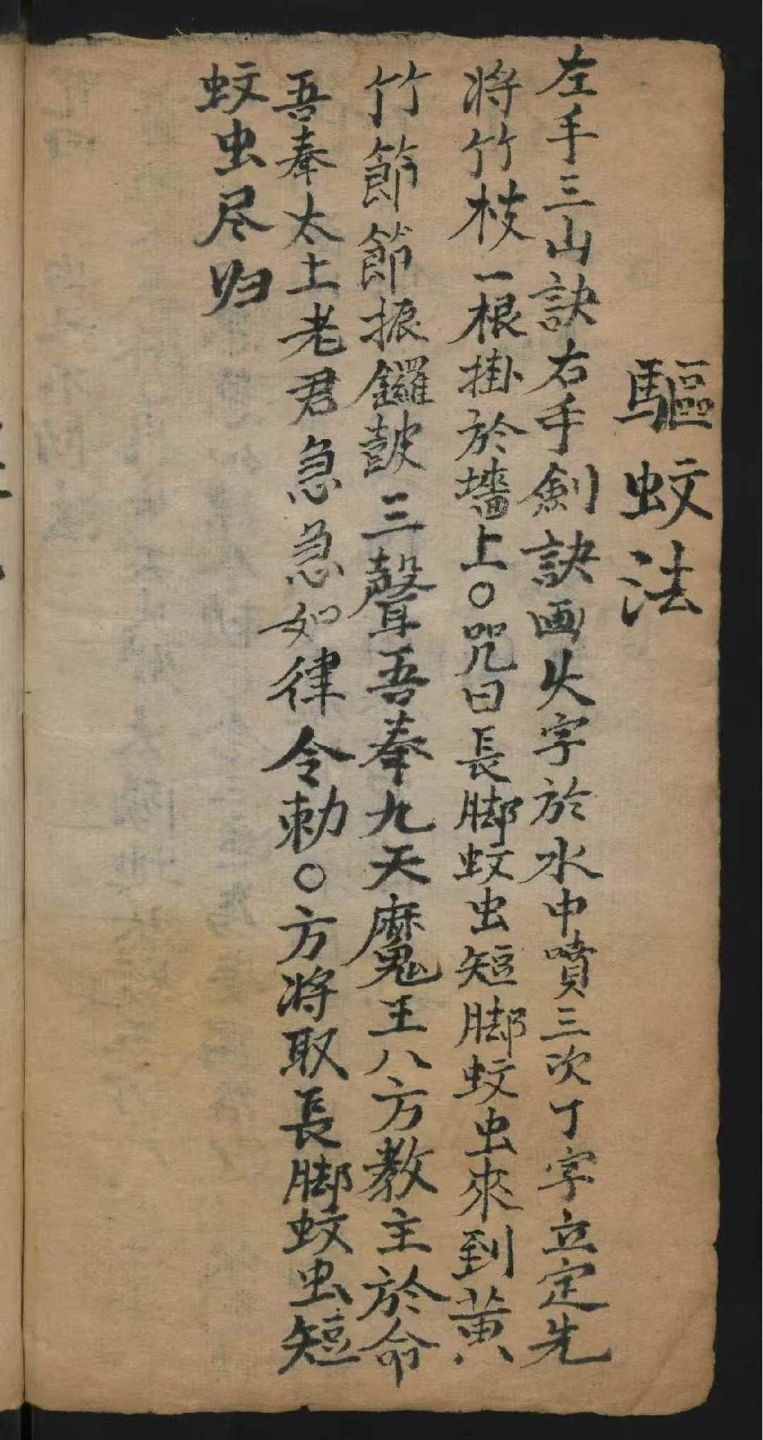 驅蚊法
左手三山訣右手劍訣画火字於水中噴三次丁字立定先
将竹枝一根掛於墻上〇咒曰長脚蚊虫短脚蚊虫來到黄
竹節節振鑼皷三聲吾奉九天魔王八方教主於命
吾奉太上老君急急如律令勅〇方将取長脚蚊虫短
蚊虫尽归